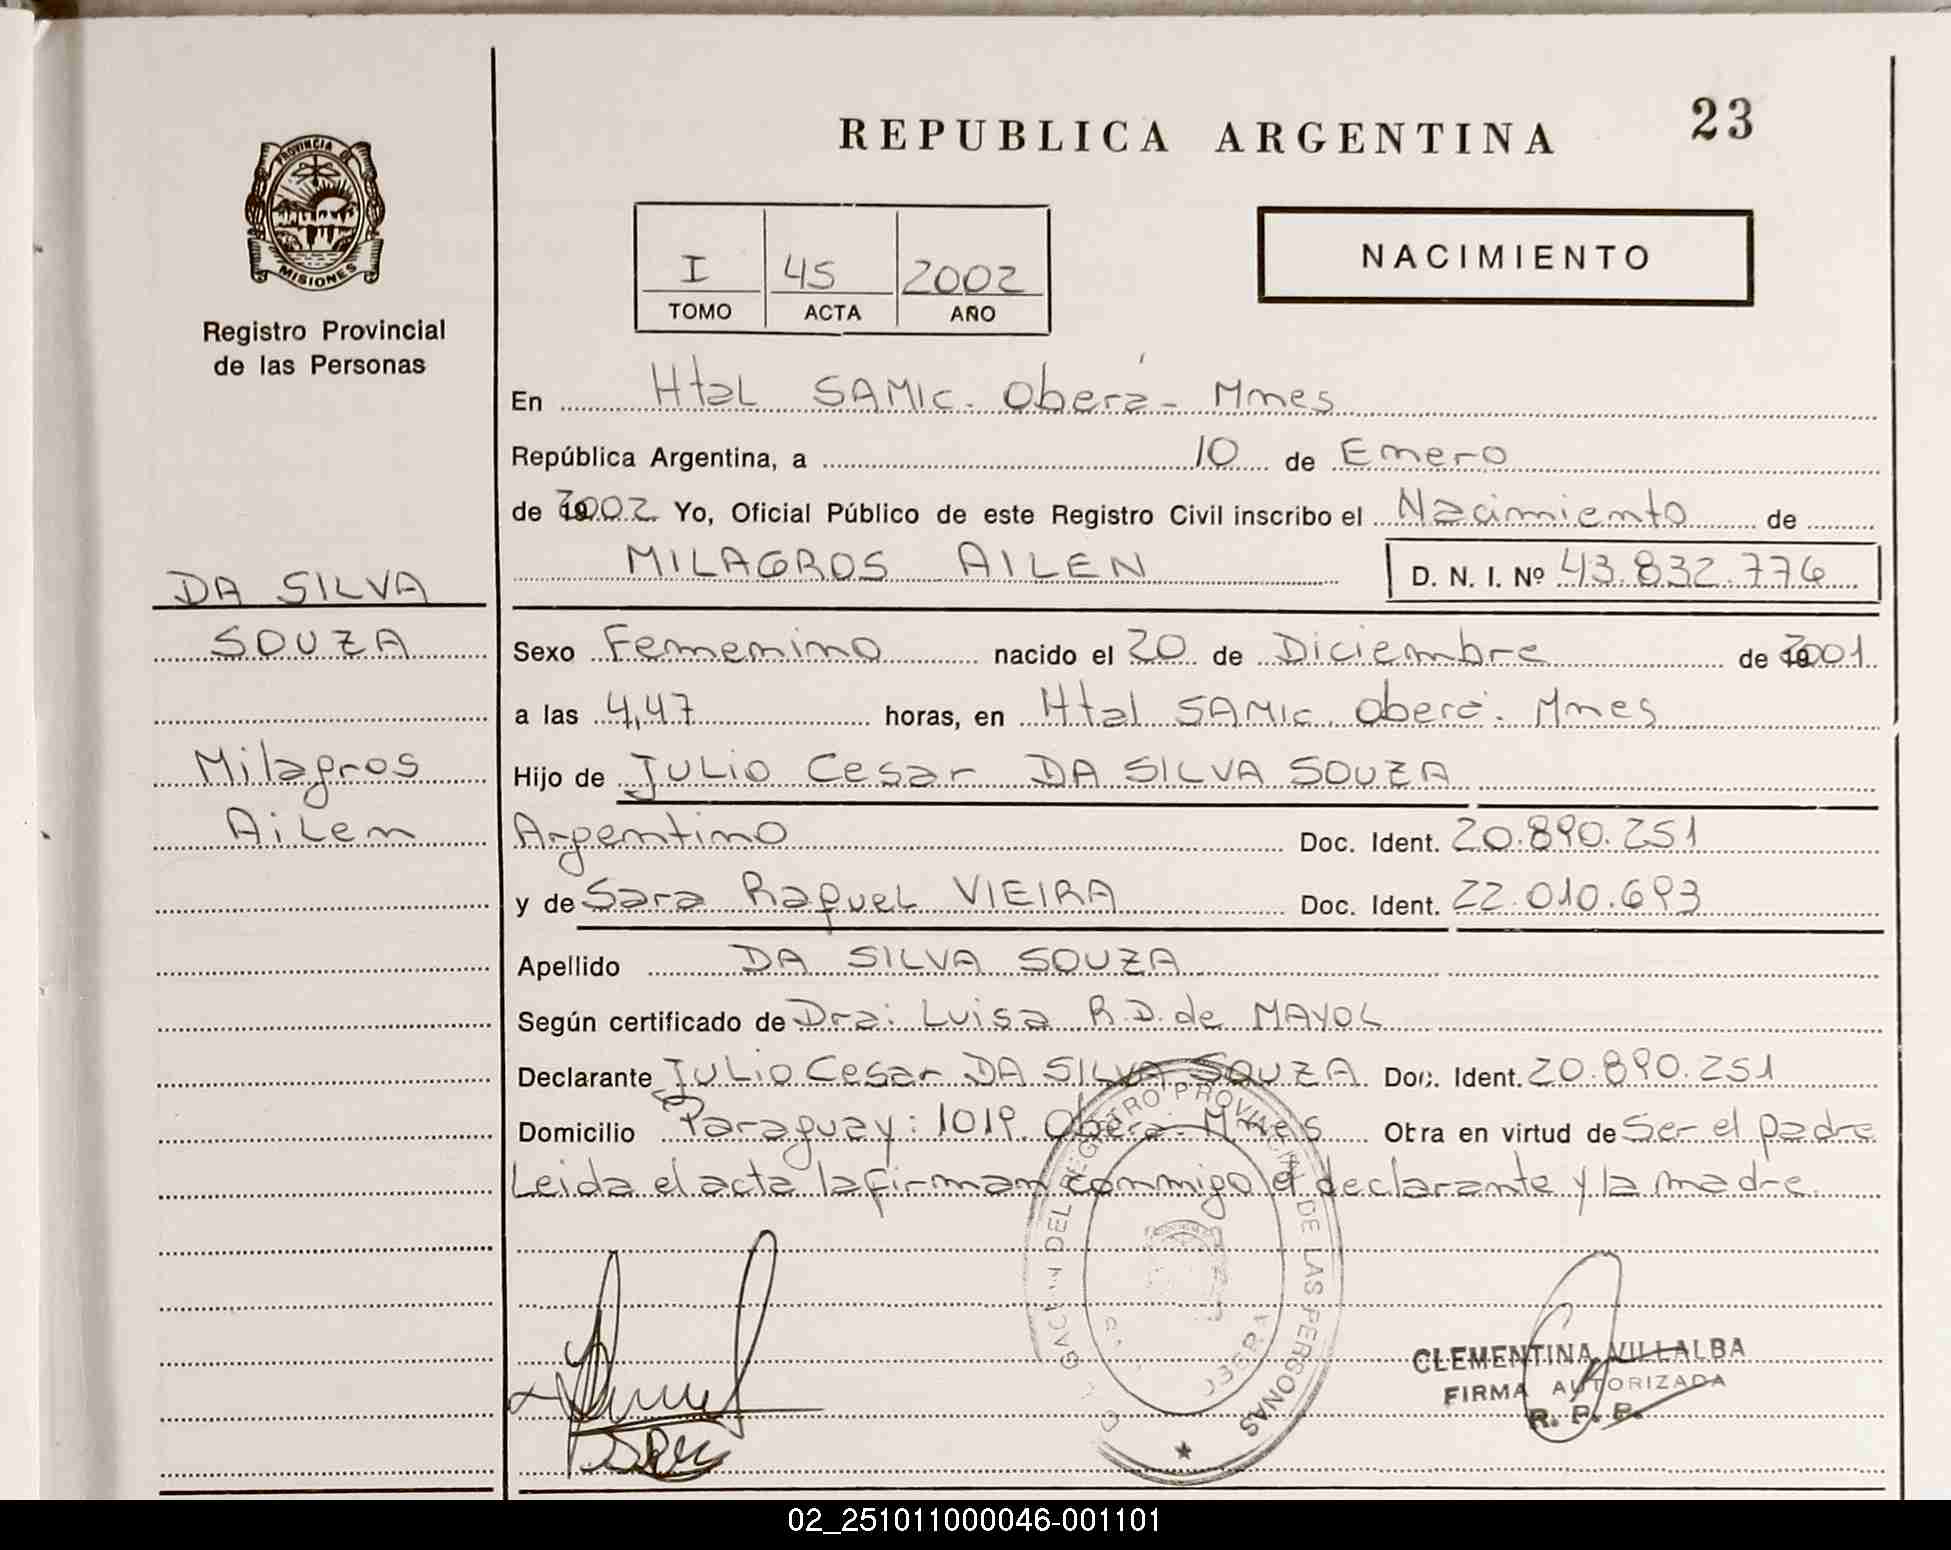 REPUBLICA ARGENTINA
23
PROVINCIA DE
MISIONES
Registro Provincial
de las Personas
I 45 2002
TOMO ACTA AÑO
NACIMIENTO
En Htal SAMIC. Oberá - Mnes
República Argentina, a 10 de Enero
de 2002 Yo, Oficial Público de este Registro Civil inscribo el Nacimiento de
MILAGROS AILEN D. N. I. Nº 43.832.776
DA SILVA
SOUZA
Milagros
Ailen
Sexo Femenino nacido el 20 de Diciembre de 2001
a las 4,47 horas, en Htal SAMIC Oberá. Mnes
Hijo de JULIO Cesar DA SILVA SOUZA
Argentino Doc. Ident. 20.890.251
y de Sara Raquel VIEIRA Doc. Ident. 22.010.693
Apellido DA SILVA SOUZA
Según certificado de Dra: Luisa R.D. de MAYOL
Declarante JULIO Cesar DA SILVA SOUZA Doc. Ident. 20.890.251
Domicilio Paraguay: 1019. Oberá. Mnes Obra en virtud de Ser el padre
Leida el acta la firman conmigo el declarante y la madre.
DEL REGISTRO PROVINCIAL DE LAS PERSONAS
CLEMENTINA VILLALBA
FIRMA AUTORIZADA
R. P. P.
02_251011000046-001101